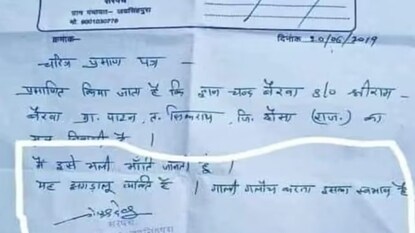 सरपंच
ग्राम पंचायत- जयसिंहपुरा
मो. 9001030779
क्रमांक दिनांक 20/06/2019
- चरित्र प्रमाण पत्र -
प्रमाणित किया जाता है कि ज्ञान चन्द बैरवा s/o श्रीराम-
बैरवा ग्रा. पाटन, त. सिकराय, जि. दौसा (राज.) का
है ।
मैं इसे भली भाँति जानता हूँ ।
यह झगड़ालू व्यक्ति है । गाली गलौच करना इसका स्वभाव है
सरपंच